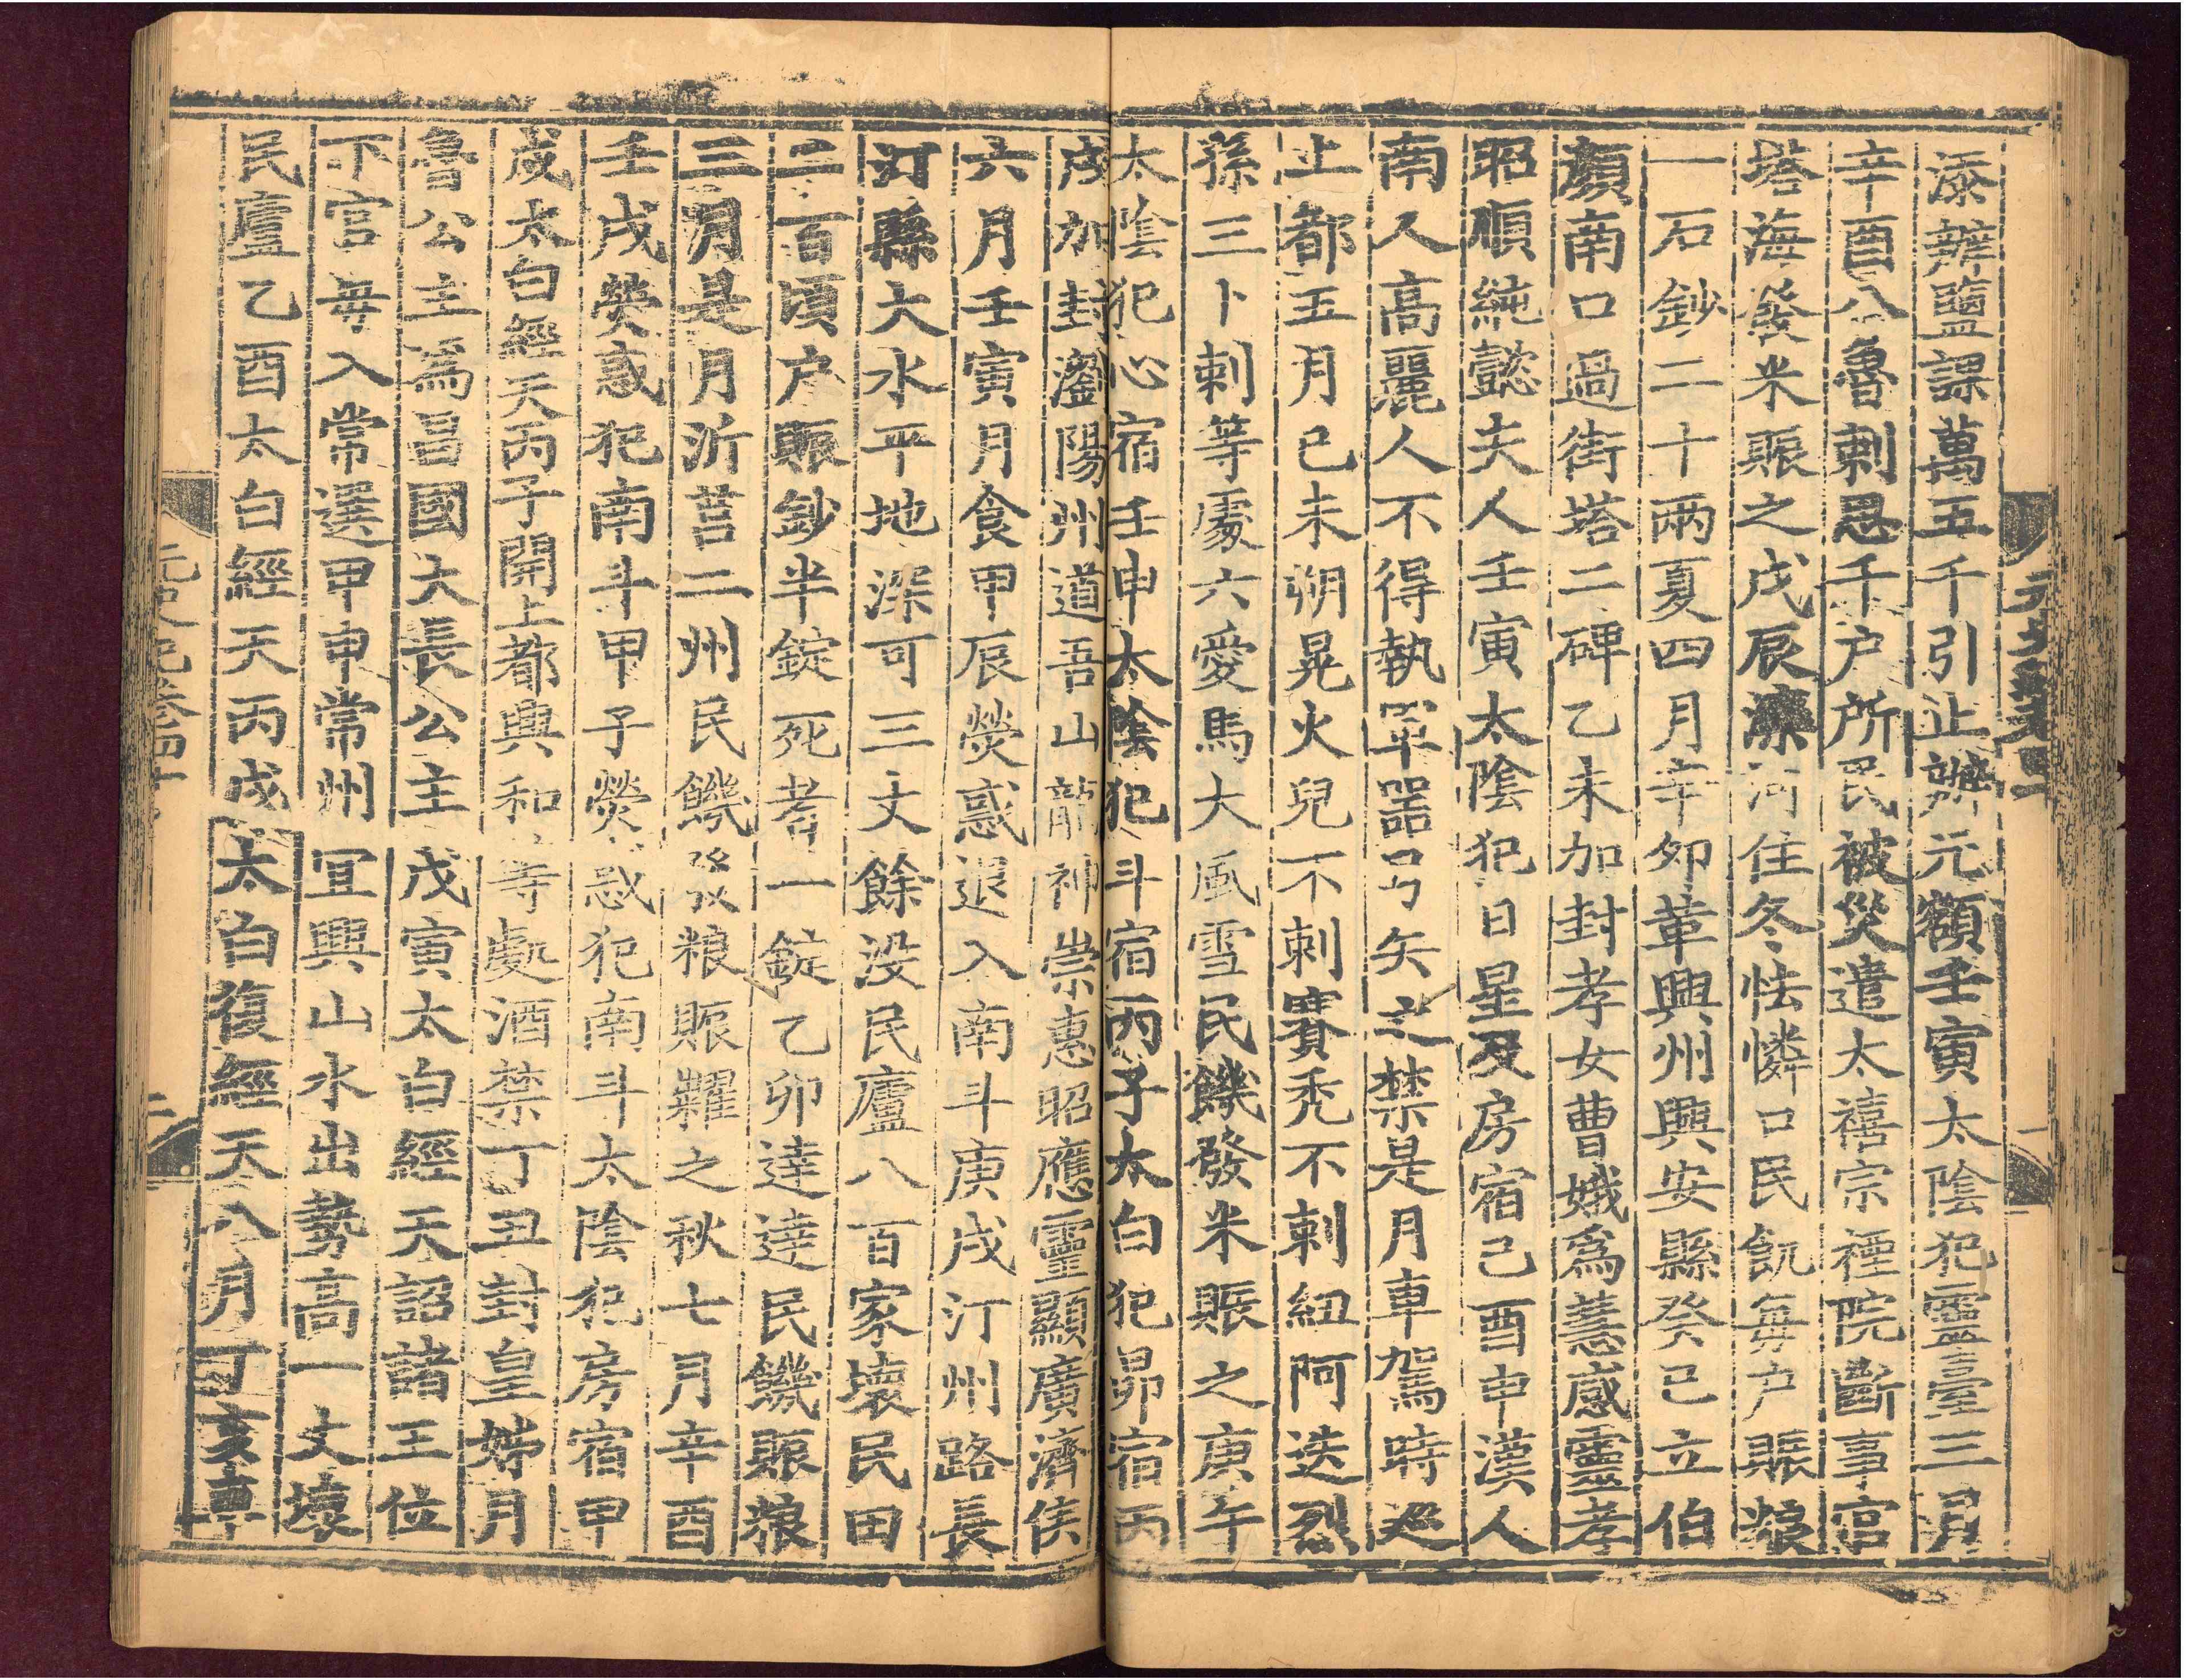 添辦鹽課萬五千引止辦元額壬寅太陰犯靈臺三月
辛酉八魯剌思千户所民被災遣太禧宗禋院斷事官
塔海發米賑之戊辰漷河住冬怯憐口民飢每户賑粮
一石鈔二十兩夏四月辛卯革興州興安縣癸巳立伯
顏南口過街塔二碑乙未加封孝女曹娥爲慧感靈孝
昭順純懿夫人壬寅太陰犯日星及房宿己酉申漢人
南人高麗人不得執軍器弓矢之禁是月車駕時巡
上都五月己未朔晃火兒不剌賽禿不剌紐阿迭烈
孫三卜剌等處六愛馬大風雪民饑發米賑之庚午
太陰犯心宿壬申太陰犯斗宿丙子太白犯昴宿丙
戌加封瀏陽州道吾山龍神崇惠昭應靈顯廣濟侯
六月壬寅月食甲辰熒惑退入南斗庚戌汀州路長
汀縣大水平地深可三丈餘没民廬八百家壞民田
二百頃户賑鈔半錠死者一錠乙卯達達民饑賑粮
三月是月沂莒二州民饑發粮賑糶之秋七月辛酉
壬戌熒惑犯南斗甲子熒惑犯南斗太陰犯房宿甲
戌太白經天丙子開上都興和等處酒禁丁丑封皇姊月
魯公主爲昌國大長公主戊寅太白經天詔諸王位
下官毋入常選甲申常州宜興山水出勢高一丈壞
民廬乙酉太白經天丙戌太白復經天八月丁亥車
元史紀卷四十
三